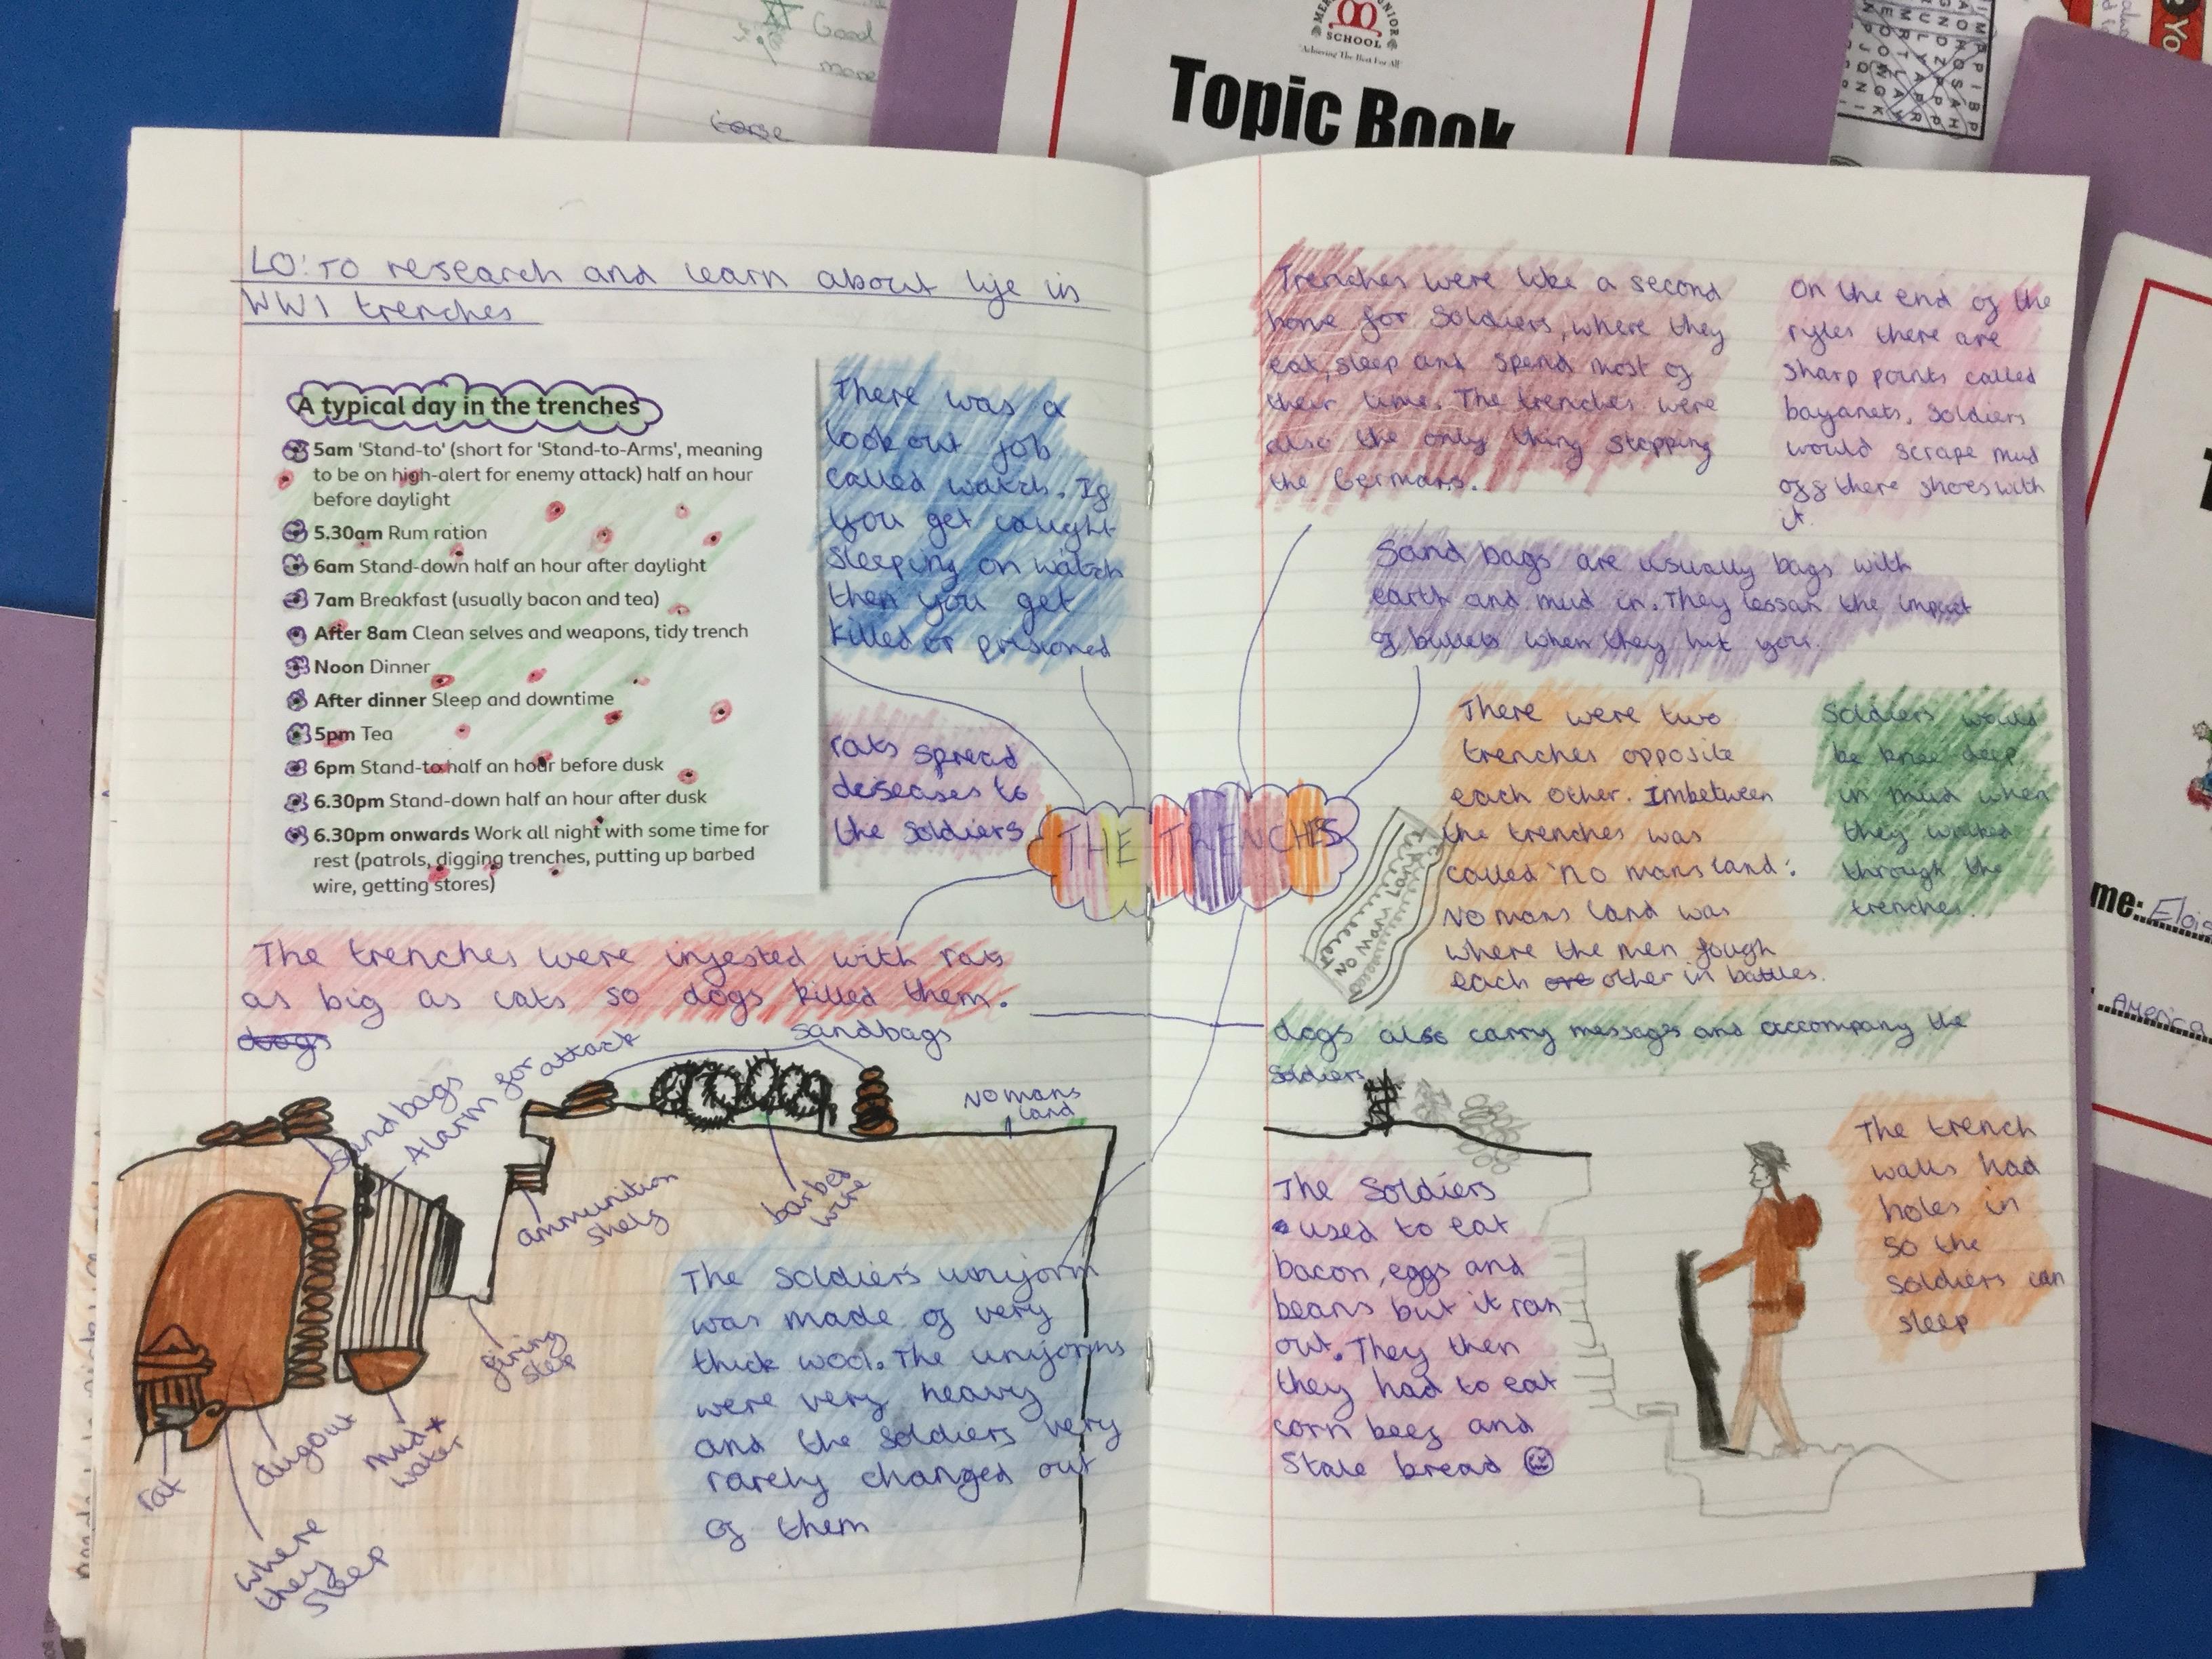 Good
more
torse
SCHOOL
"Achieving The Best For All"
Topic Book
LO: To research and learn about life in
WW1 trenches
A typical day in the trenches
5am 'Stand-to' (short for 'Stand-to-Arms', meaning
to be on high-alert for enemy attack) half an hour
before daylight
5.30am Rum ration
6am Stand-down half an hour after daylight
7am Breakfast (usually bacon and tea)
After 8am Clean selves and weapons, tidy trench
Noon Dinner
After dinner Sleep and downtime
5pm Tea
6pm Stand-to half an hour before dusk
6.30pm Stand-down half an hour after dusk
6.30pm onwards Work all night with some time for
rest (patrols, digging trenches, putting up barbed
wire, getting stores)
There was a
look out job
called watch. If
you get caught
sleeping on watch
then you get
killed or prisioned
rats spread
deseases to
the soldiers
THE TRENCHES
The trenches were infested with rats
as big as cats so dogs killed them.
dogs
sandbags
Alarm for attack
sandbags
No mans
land
ammunition
shelf
barbes
wire
firing
step
rat
dugout
mud +
water
where
they
sleep
The soldiers uniform
was made of very
thick wool. The uniforms
were very heavy
and the soldiers very
rarely changed out
of them
Trenches were like a second
home for soldiers, where they
eat, sleep and spend most of
their time. The trenches were
also the only thing stopping
the Germans.
On the end of the
rifles there are
sharp points called
bayanets. Soldiers
would scrape mud
off there shoes with
it
Sand bags are usually bags with
earth and mud in. They lessan the impact
of bullets when they hit you.
There were two
trenches opposite
each other. Imbetween
the trenches was
called 'no mans land'.
No mans land was
where the men fough
each ore other in battles.
No Mans Land
Soldiers would
be knee deep
in mud when
they walked
through the
trenches.
dogs also carry messages and accompany the
soldiers
The Soldiers
used to eat
bacon, eggs and
beans but it ran
out. They then
they had to eat
corn beef and
stale bread
The trench
walls had
holes in
so the
soldiers can
sleep
me: Elois
America